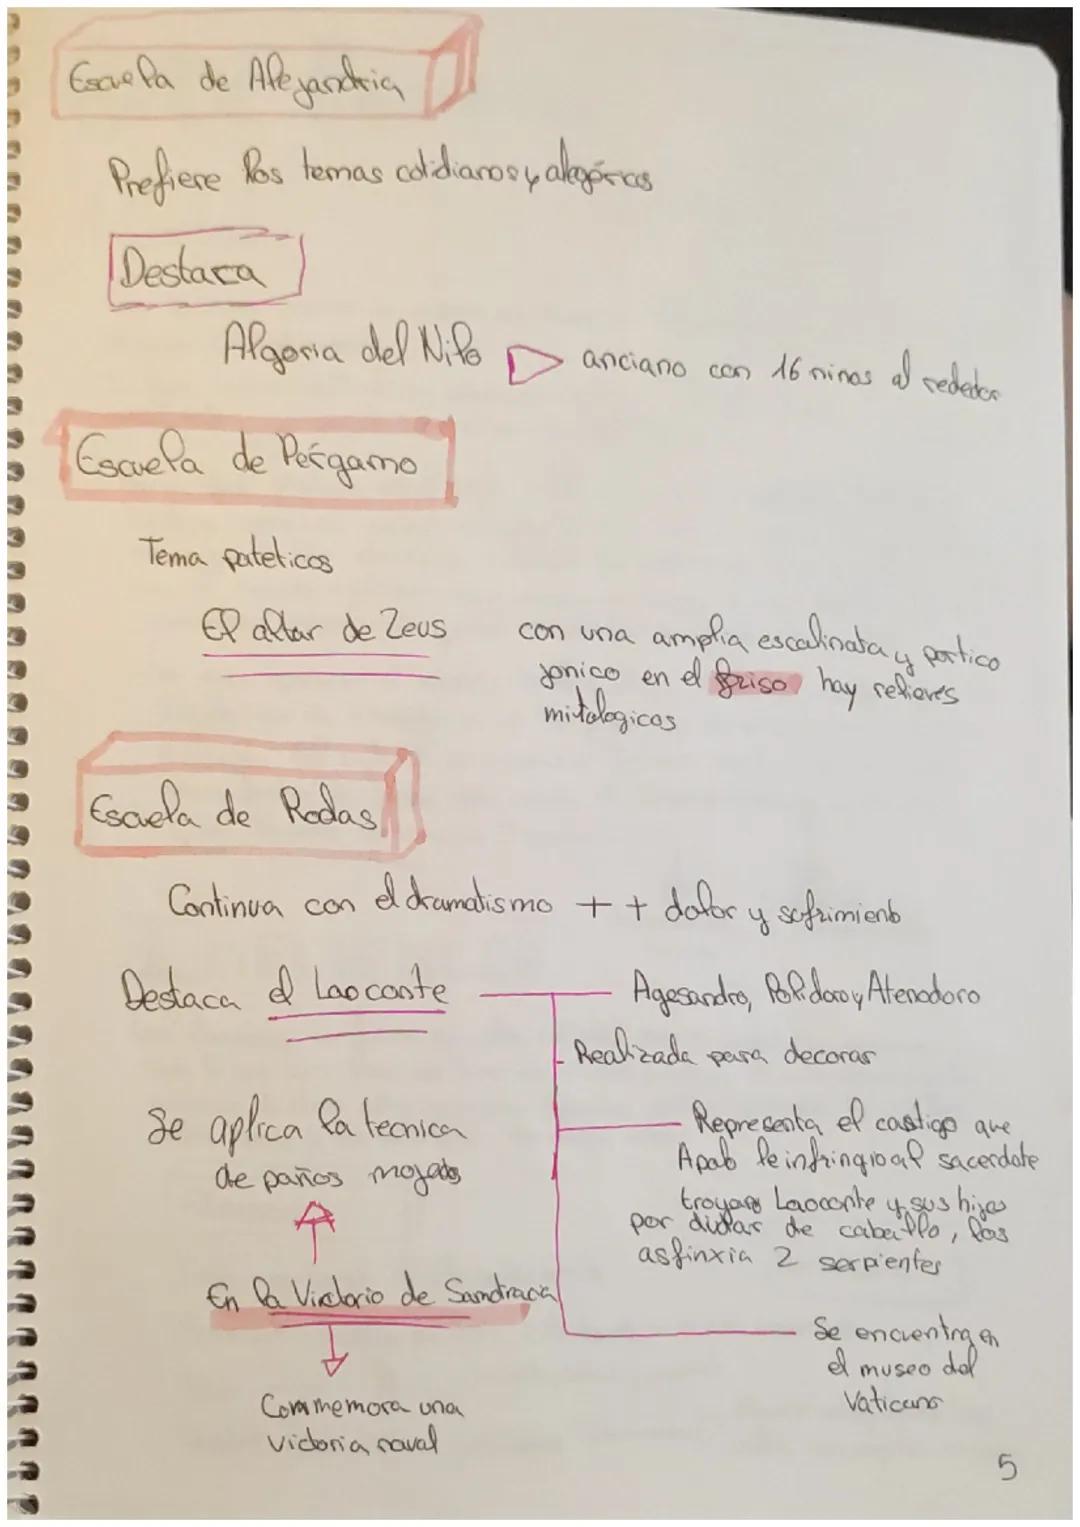 Escuela de Alejandria
Prefiere los temas cotidianos y alegóricos
Destaca
Algoria del Nilo anciano con 16 ninos al rededor
Escuela de Pérgamo
Tema pateticos
El altar de Zeus con una amplia escalinata y portico
jonico en el friso hay relieves
mitologicos
Escuela de Rodas
Continua con el dramatismo ++ dolor y sufrimiento
Destaca el Laoconte
Agesandro, Polidoro y Atenodoro
Realizada para decorar
Representa el castigo que
Apolo le infringio al sacerdote
troyano Laoconte y sus hijos
por dudar de caballo, los
asfinxia 2 serpientes
Se encuentra en
el museo del
Vaticano
Se aplica la tecnica
de paños mojados
En la Victorio de Samotracia
Commemora una
victoria naval
5